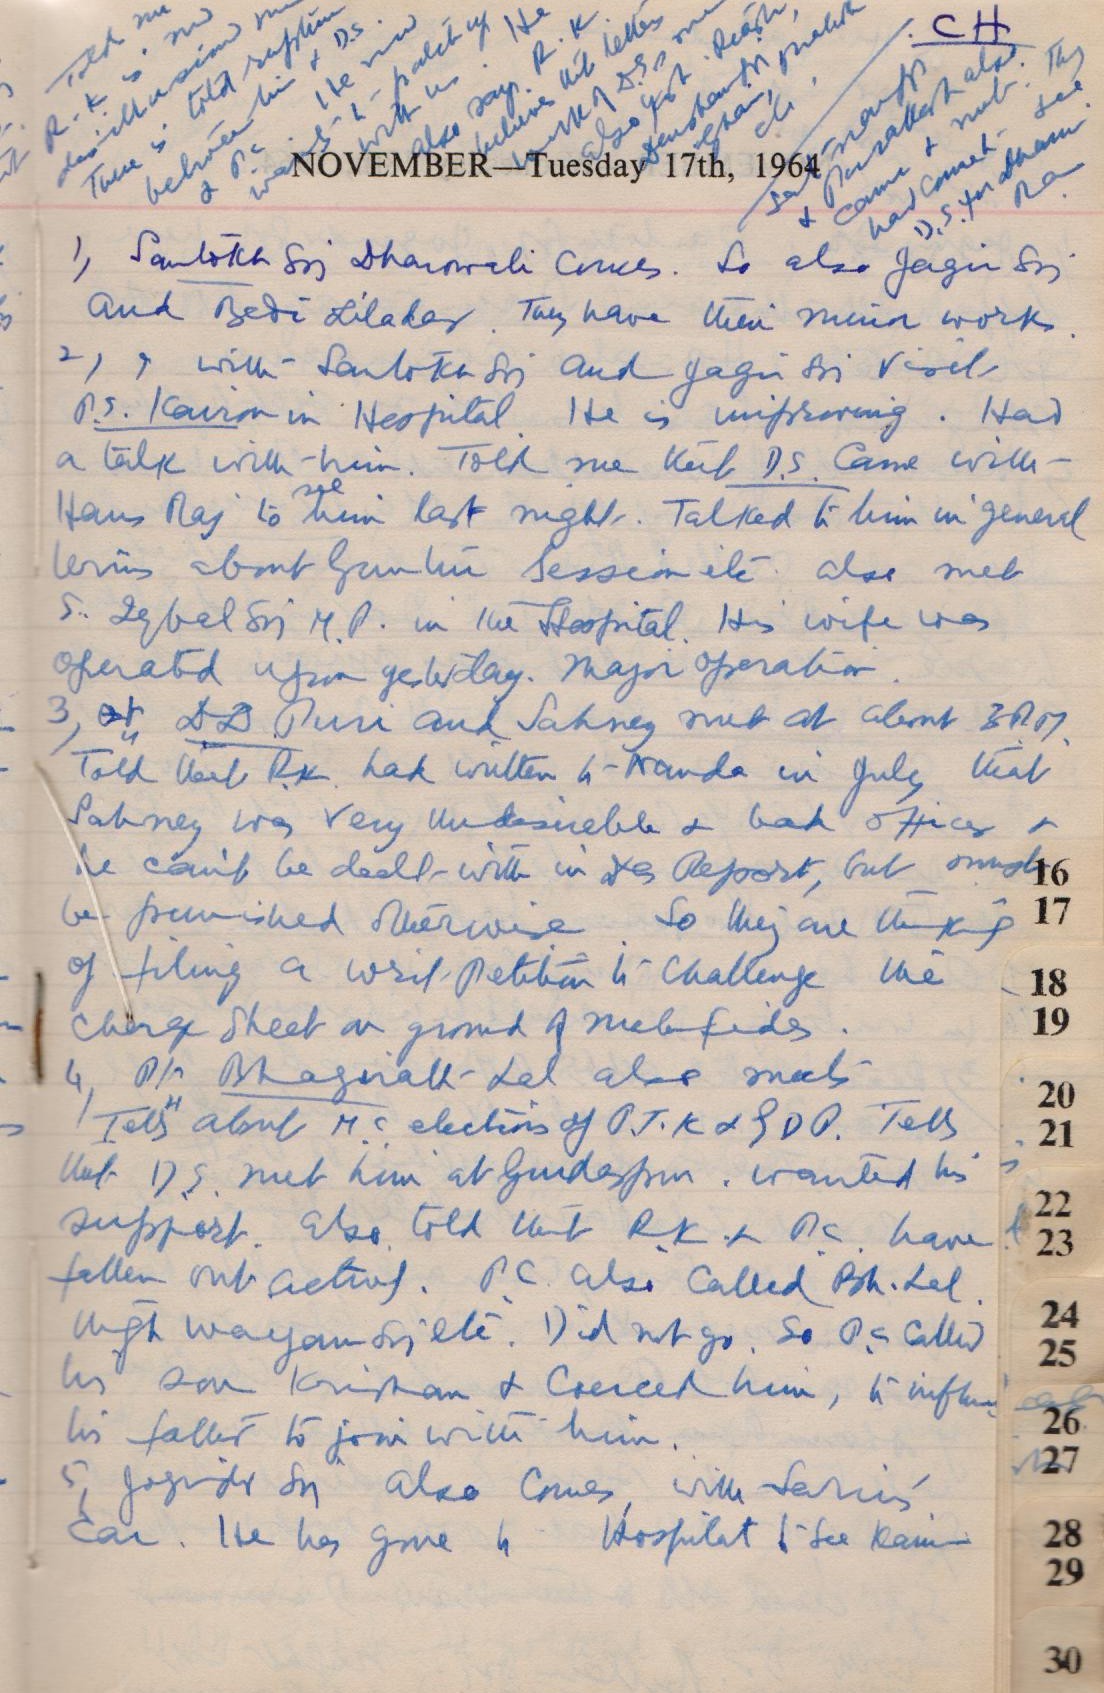 CH
Told me
R.K. is now
disillusioned
There is told rupture
between him & D.S.
& P.C. He now
wants to patch up
with us. He
also says R.K.
believes that letters
work of D.S.
also got
Darshan Sj
etc.
Sant
& Parkash also
came & met. They
had come to see
D.S.
NOVEMBER—Tuesday 17th, 1964
1, Santokh Sij Dharowali comes. So also Jagir Sij
and Bedi Liladar. They have their minor works.
2, I with Santokh Sij and Jagir Sij visit
P.S. Kairon in Hospital. He is improving. Had
a talk with him. Told me that D.S. came with
Hans Raj to see him last night. Talked to him in general
terms about Guntur Session etc. also met
S. Iqbal Sij M.P. in the Hospital. His wife was
operated upon yesterday. Major operation.
3, D D Puri and Sahney met at about 3 P.M.
Told that R.K. had written to Nanda in July that
Sahney was very undesirable & bad officer &
he can't be dealt with in Das Report, but must
be punished otherwise So they are thinking
of filing a writ petition to challenge the
charge sheet on ground of malafides.
4, Pt Bhagirath Lal also meets
Tells about M.C. elections of P.T.K & G D P. Tells
that D.S. met him at Gurdaspur. wanted his
support. also told that R.K. & P.C. have
fallen out actively. P.C. also called Bh. Lal.
through Waryam Sij etc. Did not go. So P.C. called
his son Krishan & coerced him, to influence
his father to join with him.
5, Joginder Sij also comes, with Sarin's
Car. He has gone to Hospital to see Kairon
16
17
18
19
20
21
22
23
24
25
26
27
28
29
30